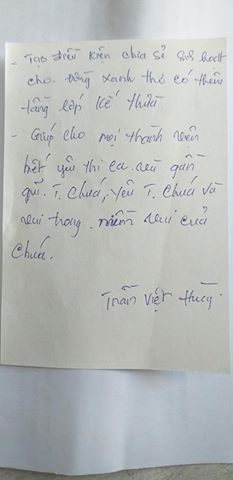 - Tạo điều kiện chia sẻ sinh hoạt
cho Đồng xanh thơ có thêm
tầng lớp kế thừa.
- Giúp cho mọi thành viên
biết yêu thi ca và gần
gũi T. Chúa, yêu T. Chúa và
vui trong niềm vui của
Chúa.
Trần Việt Hùng